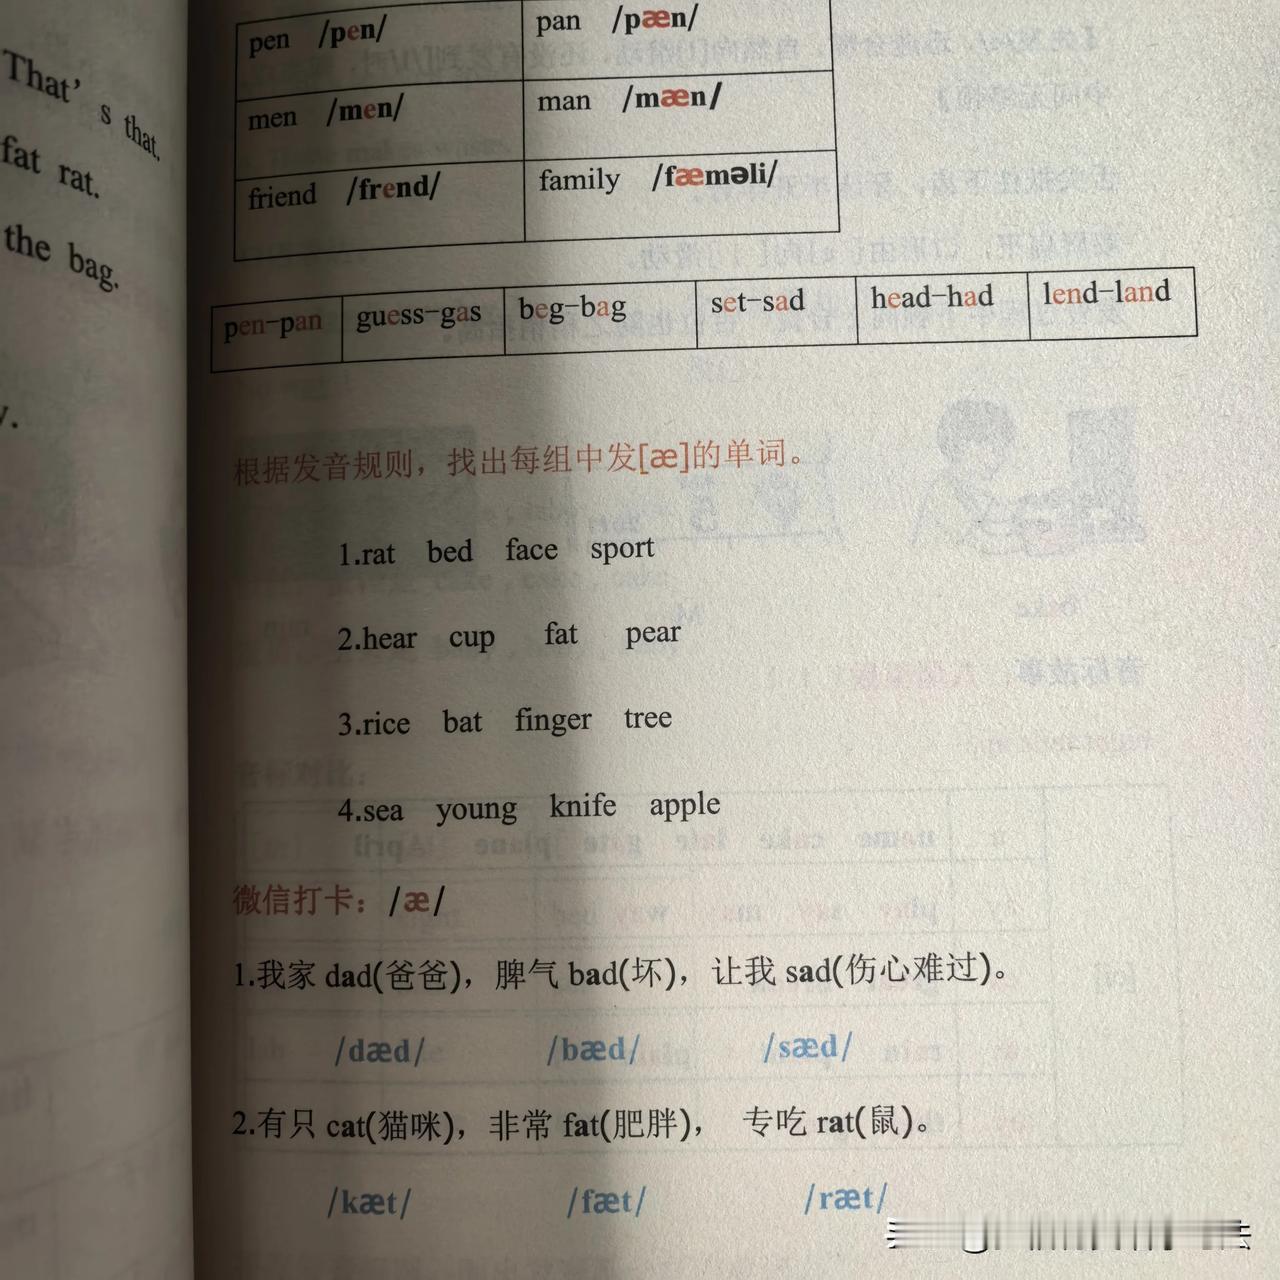 That's that.
fat rat.
the bag.
y.
pen /pen/ pan /pæn/
men /men/ man /mæn/
friend /frend/ family /fæməli/
pen-pan guess-gas beg-bag set-sad head-had lend-land
根据发音规则，找出每组中发[æ]的单词。
1.rat bed face sport
2.hear cup fat pear
3.rice bat finger tree
4.sea young knife apple
微信打卡：/æ/
1.我家 dad(爸爸)，脾气 bad(坏)，让我 sad(伤心难过)。
/dæd/ /bæd/ /sæd/
2.有只 cat(猫咪)，非常 fat(肥胖)， 专吃 rat(鼠)。
/kæt/ /fæt/ /ræt/